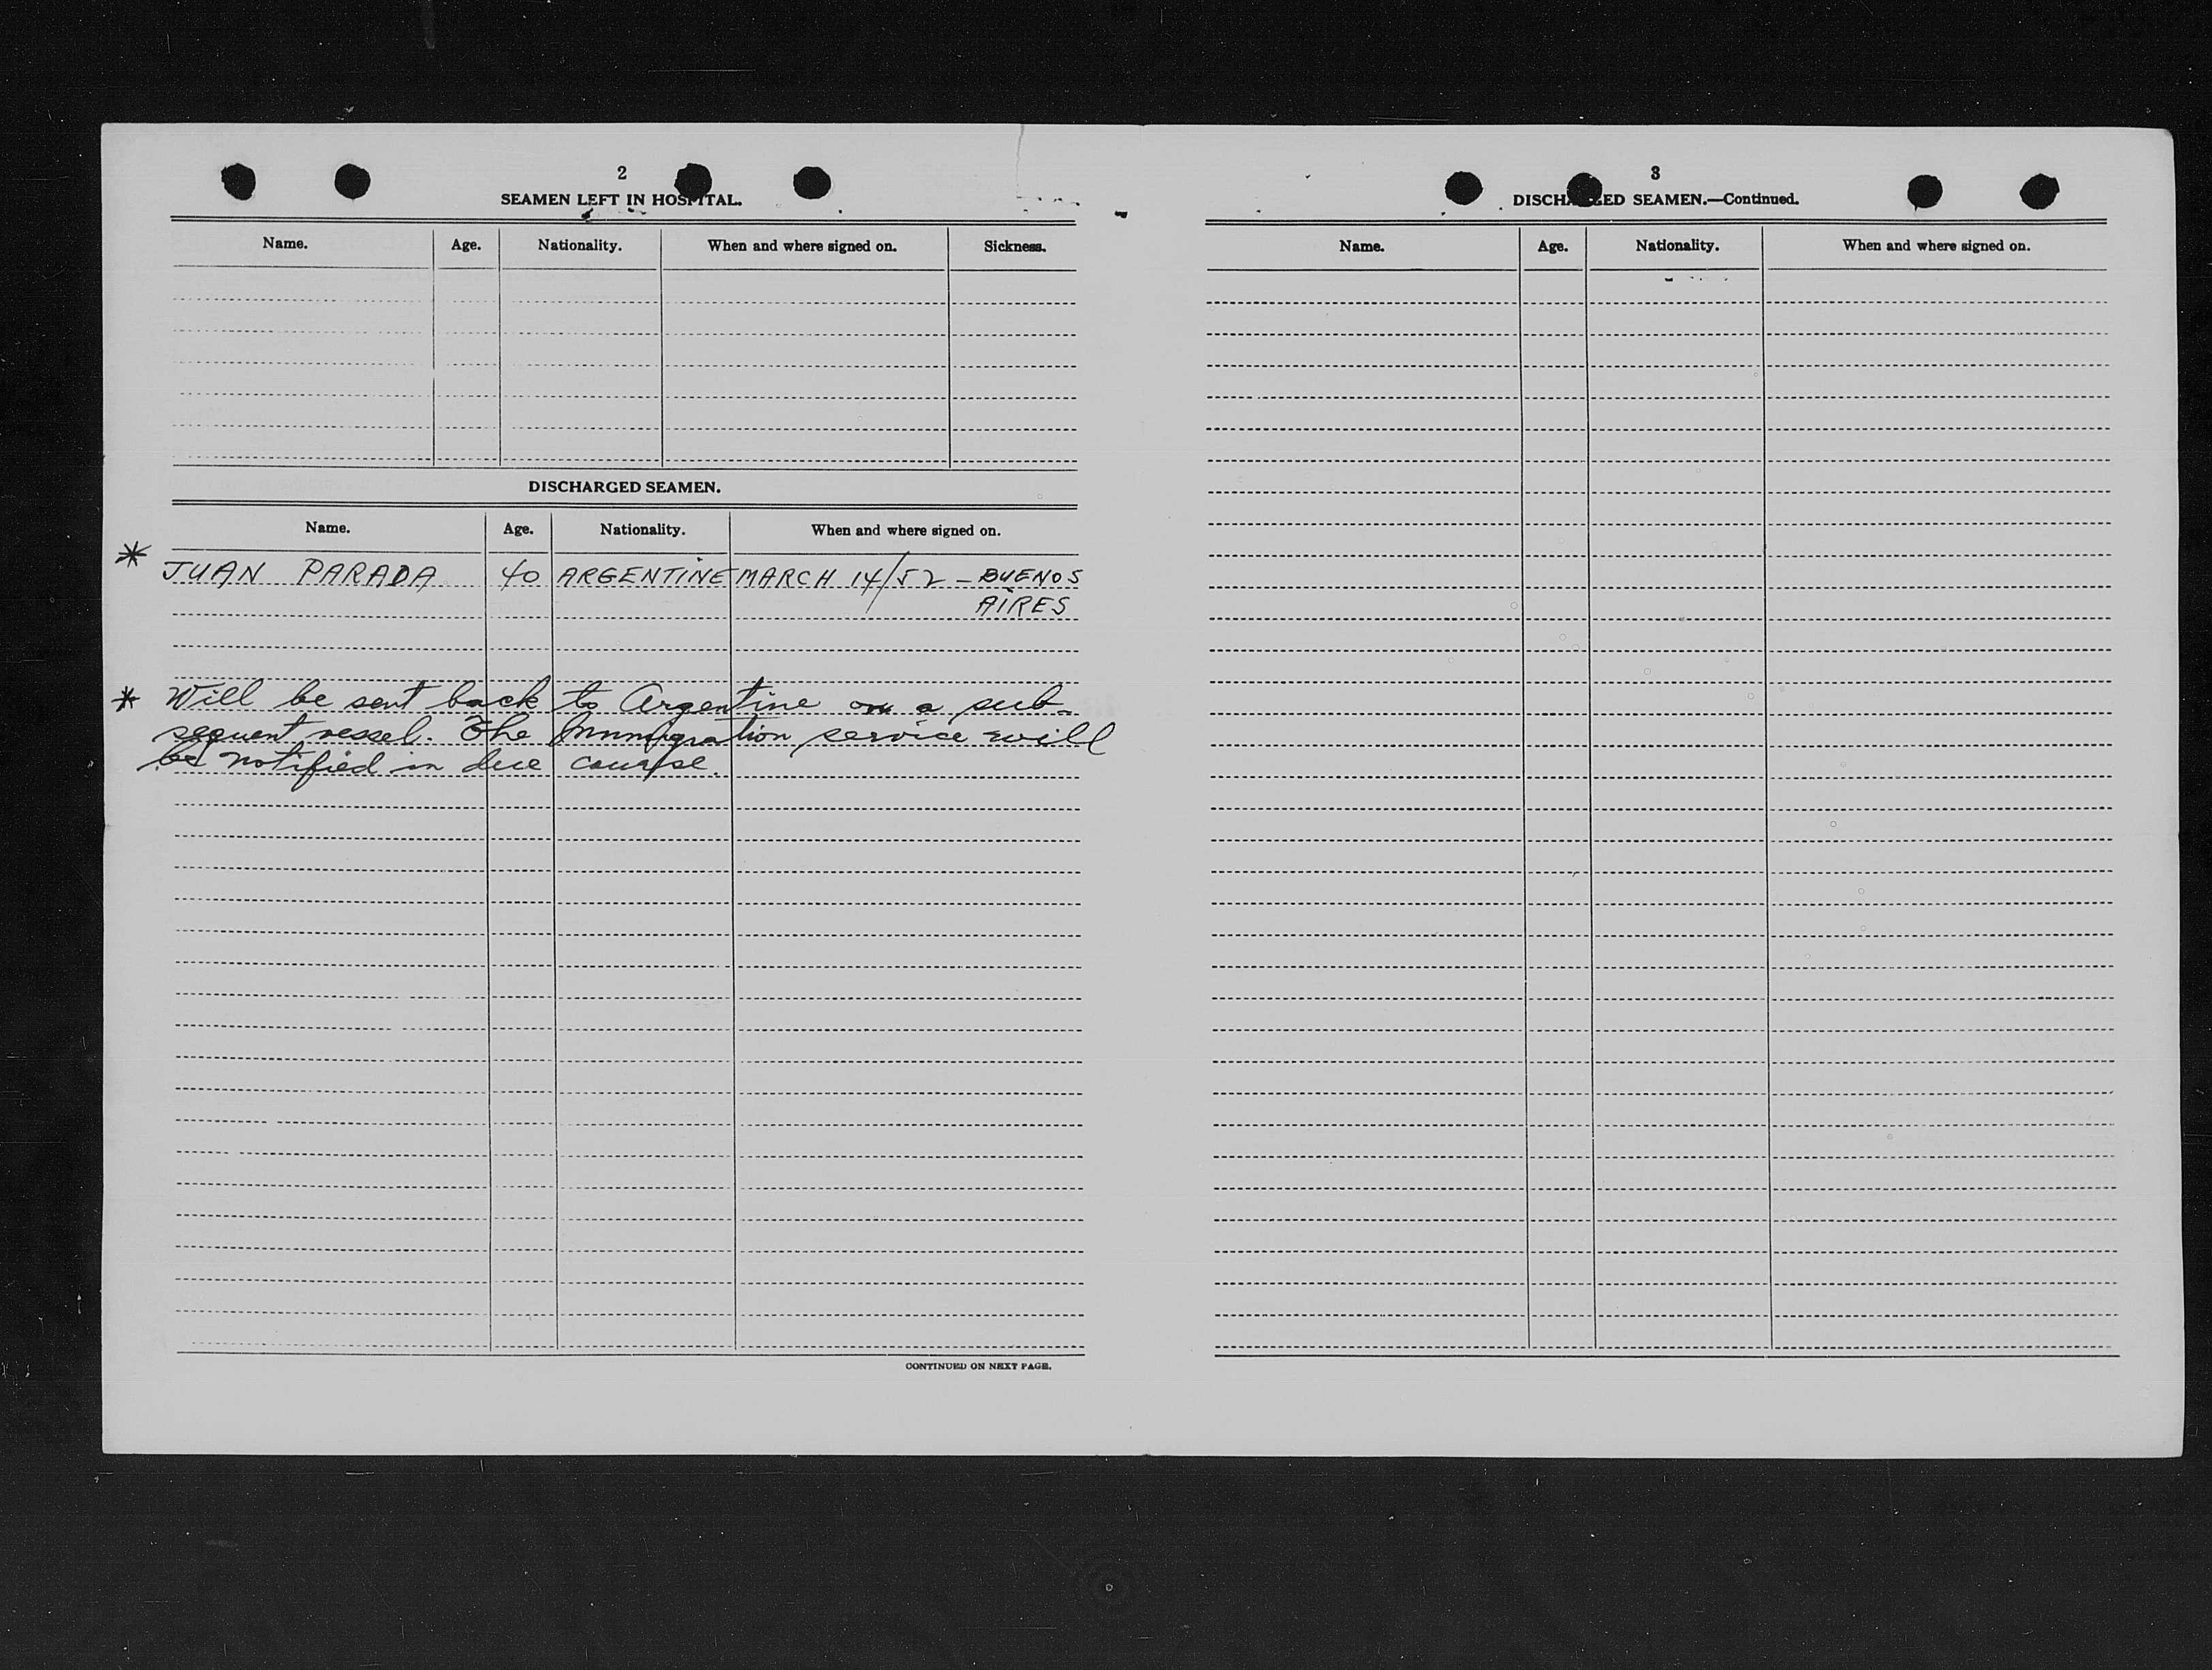 2
SEAMEN LEFT IN HOSPITAL.
Name. Age. Nationality. When and where signed on. Sickness.
DISCHARGED SEAMEN.
Name. Age. Nationality. When and where signed on.
* JUAN PARADA 40 ARGENTINE MARCH 14/52 - BUENOS
AIRES
* Will be sent back to Argentine on a sub-
sequent vessel. The Immigration service will
be notified in due course.
CONTINUED ON NEXT PAGE.
3
DISCHARGED SEAMEN.—Continued.
Name. Age. Nationality. When and where signed on.